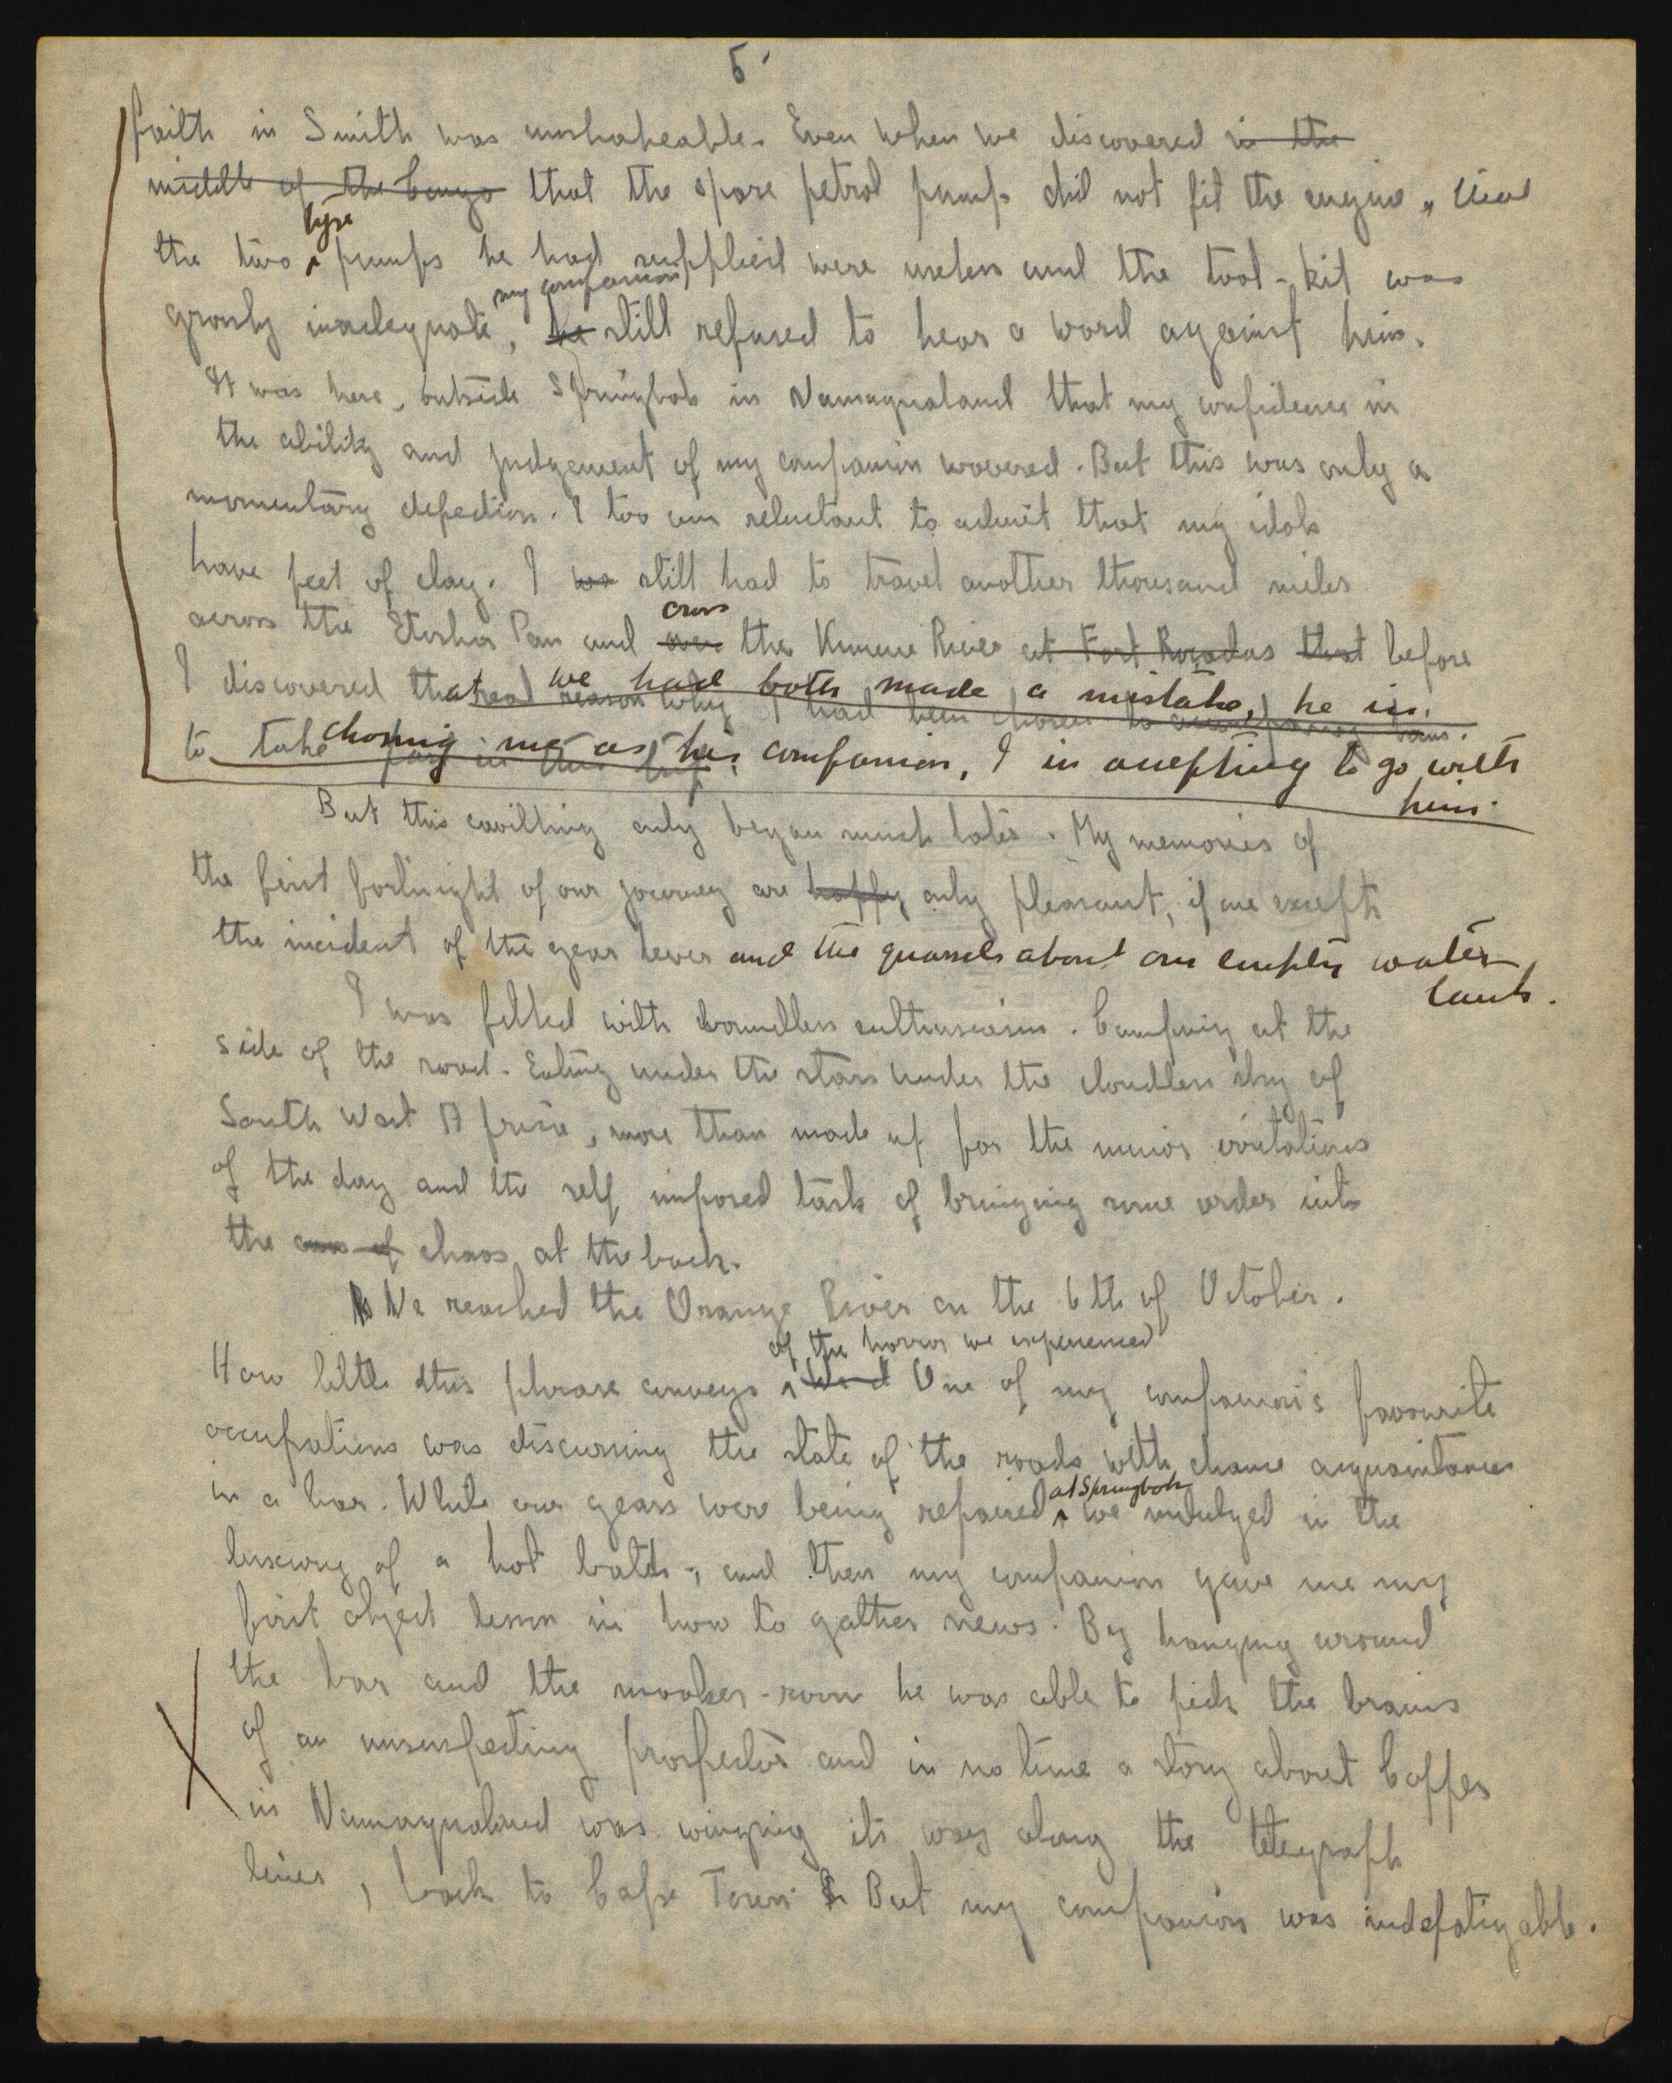 5.
faith in Smith was unshakeable. Even when we discovered in the
middle of the Congo that the spare petrol pump did not fit the engine, that
tyre
the two pumps he had supplied were useless and the tool-kit was
my companion
grossly inadequate, he still refused to hear a word against him.
It was here, outside Springbok in Namaqualand that my confidence in
the ability and judgement of my companion wavered. But this was only a
momentary defection. I too am reluctant to admit that my idols
have feet of clay. I wa still had to travel another thousand miles
cross
across the Etosha Pan and over the Kunene River at Fort Rocadas that before
I discovered that we had both made a mistake, he in
real reason why I had been chosen to accompany him.
to take part in this trip.
choosing me as his companion, I in accepting to go with
him.
But this cavilling only began much later. My memories of
the first fortnight of our journey are happy only pleasant, if one excepts
the incident of the gear lever and the quarrels about our empty water
tank.
I was filled with boundless enthusiasm. Camping at the
side of the road. Eating under the stars under the cloudless sky of
South West Africa, more than made up for the minor irritations
of the day and the self imposed task of bringing some order into
the chaos at the back.
We reached the Orange River on the 6th of October.
of the horrors we experienced
How little this phrase conveys One of my companion's favourite
occupations was discussing the state of the roads with chance acquaintances
at Springbok
in a bar. While our gears were being repaired we indulged in the
luxury of a hot bath, and then my companion gave me my
first object lesson in how to gather news. By hanging around
the bar and the smoker-room he was able to pick the brains
of an unsuspecting prospector and in no time a story about Copper
in Namaqualand was winging its way along the telegraph
lines, back to Cape Town. But my companion was indefatigable.